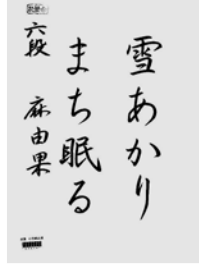 雪あかり
まち眠る
六段 麻由果